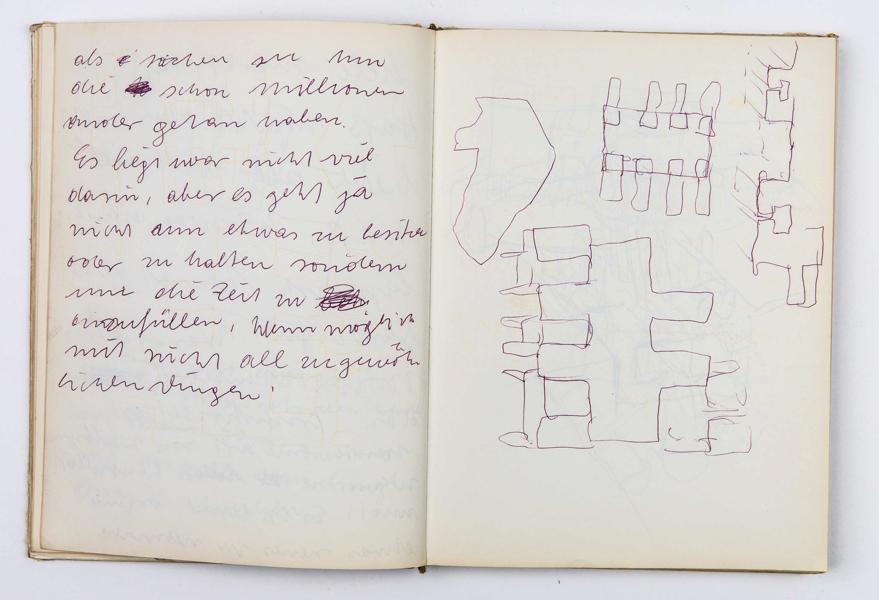 als sachen zu tun
die schon millionen
ander getan haben.
Es liegt zwar nicht viel
darin, aber es geht ja
nicht um etwas zu besitzen
oder zu halten sondern
um die Zeit zu
anzufüllen, wenn möglich
mit nicht all zu gewöhn
lichen Dingen.